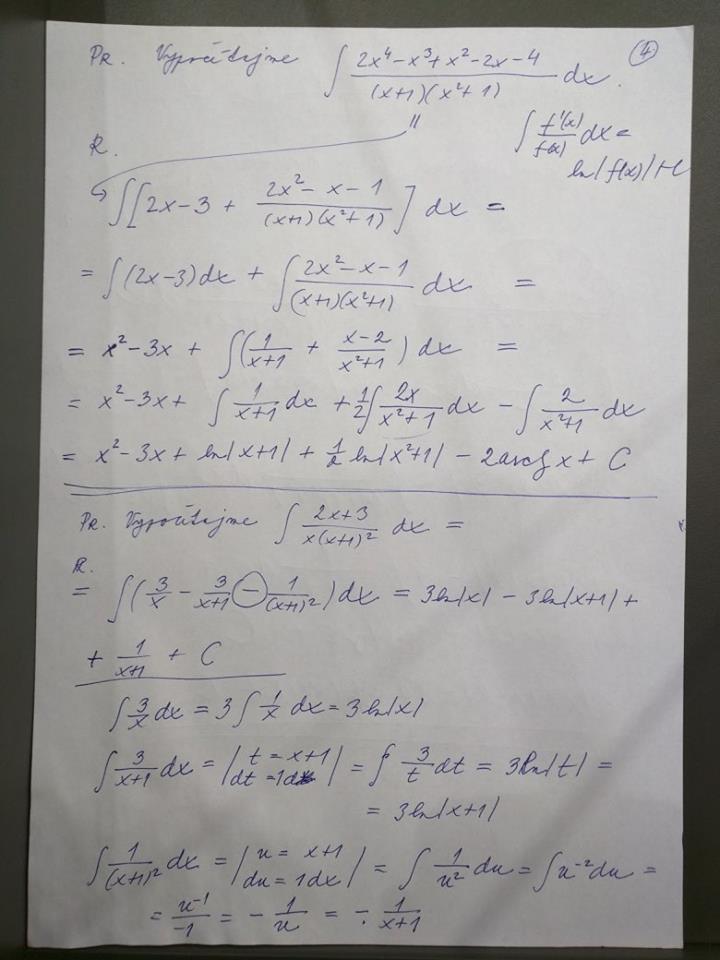 Pr. Vypočítajme ∫ (2x⁴-x³+x²-2x-4)/((x+1)(x²+1)) dx. (4)
∫ f'(x)/f(x) dx =
ln|f(x)|+C
R.
∫[2x-3 + (2x²-x-1)/((x+1)(x²+1))] dx =
= ∫(2x-3)dx + ∫ (2x²-x-1)/((x+1)(x²+1)) dx =
= x²-3x + ∫(1/(x+1) + (x-2)/(x²+1)) dx =
= x²-3x + ∫ 1/(x+1) dx + 1/2 ∫ 2x/(x²+1) dx - ∫ 2/(x²+1) dx
= x²-3x + ln|x+1| + 1/2 ln|x²+1| - 2arctg x + C
Pr. Vypočítajme ∫ (2x+3)/(x(x+1)²) dx =
R.
= ∫(3/x - 3/(x+1) - 1/(x+1)²)dx = 3ln|x| - 3ln|x+1| +
+ 1/(x+1) + C
∫ 3/x dx = 3∫ 1/x dx = 3ln|x|
∫ 3/(x+1) dx = | t = x+1 dt = 1dx | = ∫ 3/t dt = 3ln|t| =
= 3ln|x+1|
∫ 1/(x+1)² dx = | u = x+1 du = 1dx | = ∫ 1/u² du = ∫u⁻²du =
= u⁻¹/-1 = - 1/u = - 1/(x+1)